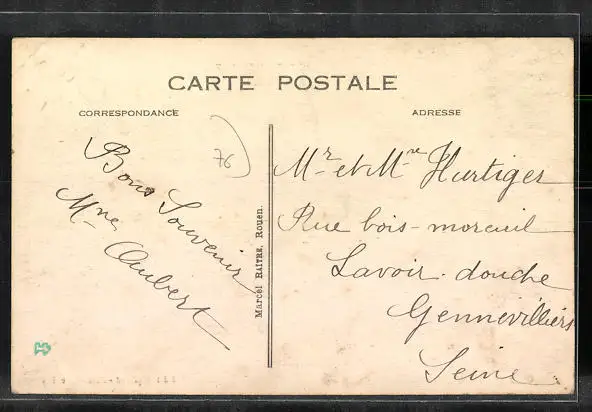 CARTE POSTALE
CORRESPONDANCE
ADRESSE
76
Bons Souvenir
Mme Aubert
Marcel RAITRE, Rouen.
Mr et Mme Hurtiger
Rue bois-moreuil
Lavoir-douche
Gennevilliers
Seine